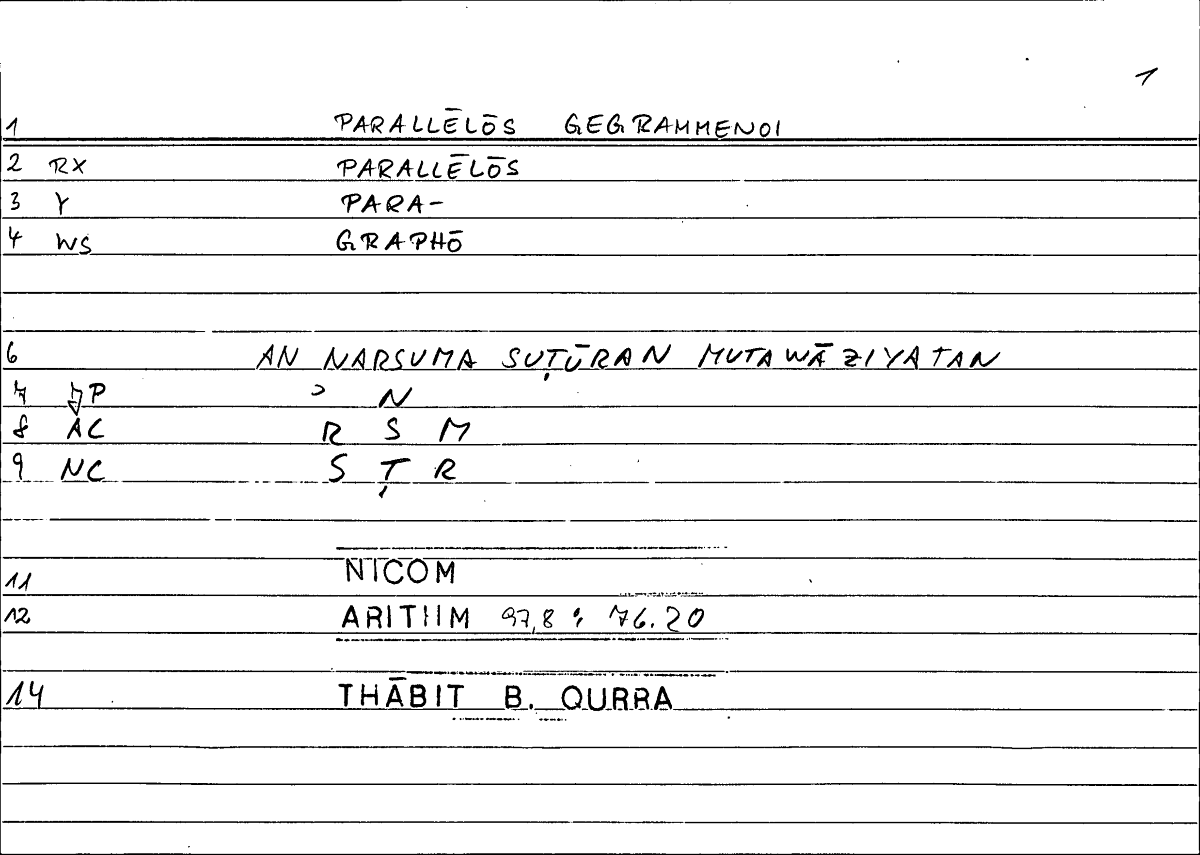 1
1 PARALLĒLŌS GEGRAMMENOI
2 RX PARALLĒLŌS
3 Y PARA-
4 WS GRAPHŌ
6 AN NARSUMA SUṬŪRAN MUTAWĀZIYATAN
7 JP ʾ N
8 AC R S M
9 NC S Ṭ R
11 NICOM
12 ARITHM 97,8 : 76.20
14 THĀBIT B. QURRA